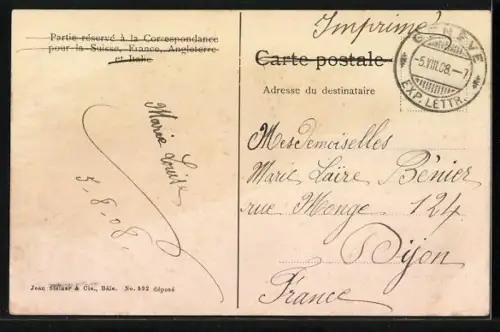 Partie réservé à la Correspondance
pour la Suisse, France, Angleterre
et Italie
Marie Louise
5.8.08.
Jean & Cie., Bâle. No. 892 déposé
Imprimé
Carte postale
Adresse du destinataire
GENÈVE
-5.VIII.08.-7
EXP. LETTR.
Mesdemoiselles
Marie Laïre Bénier
rue Monge 124
Dijon
France